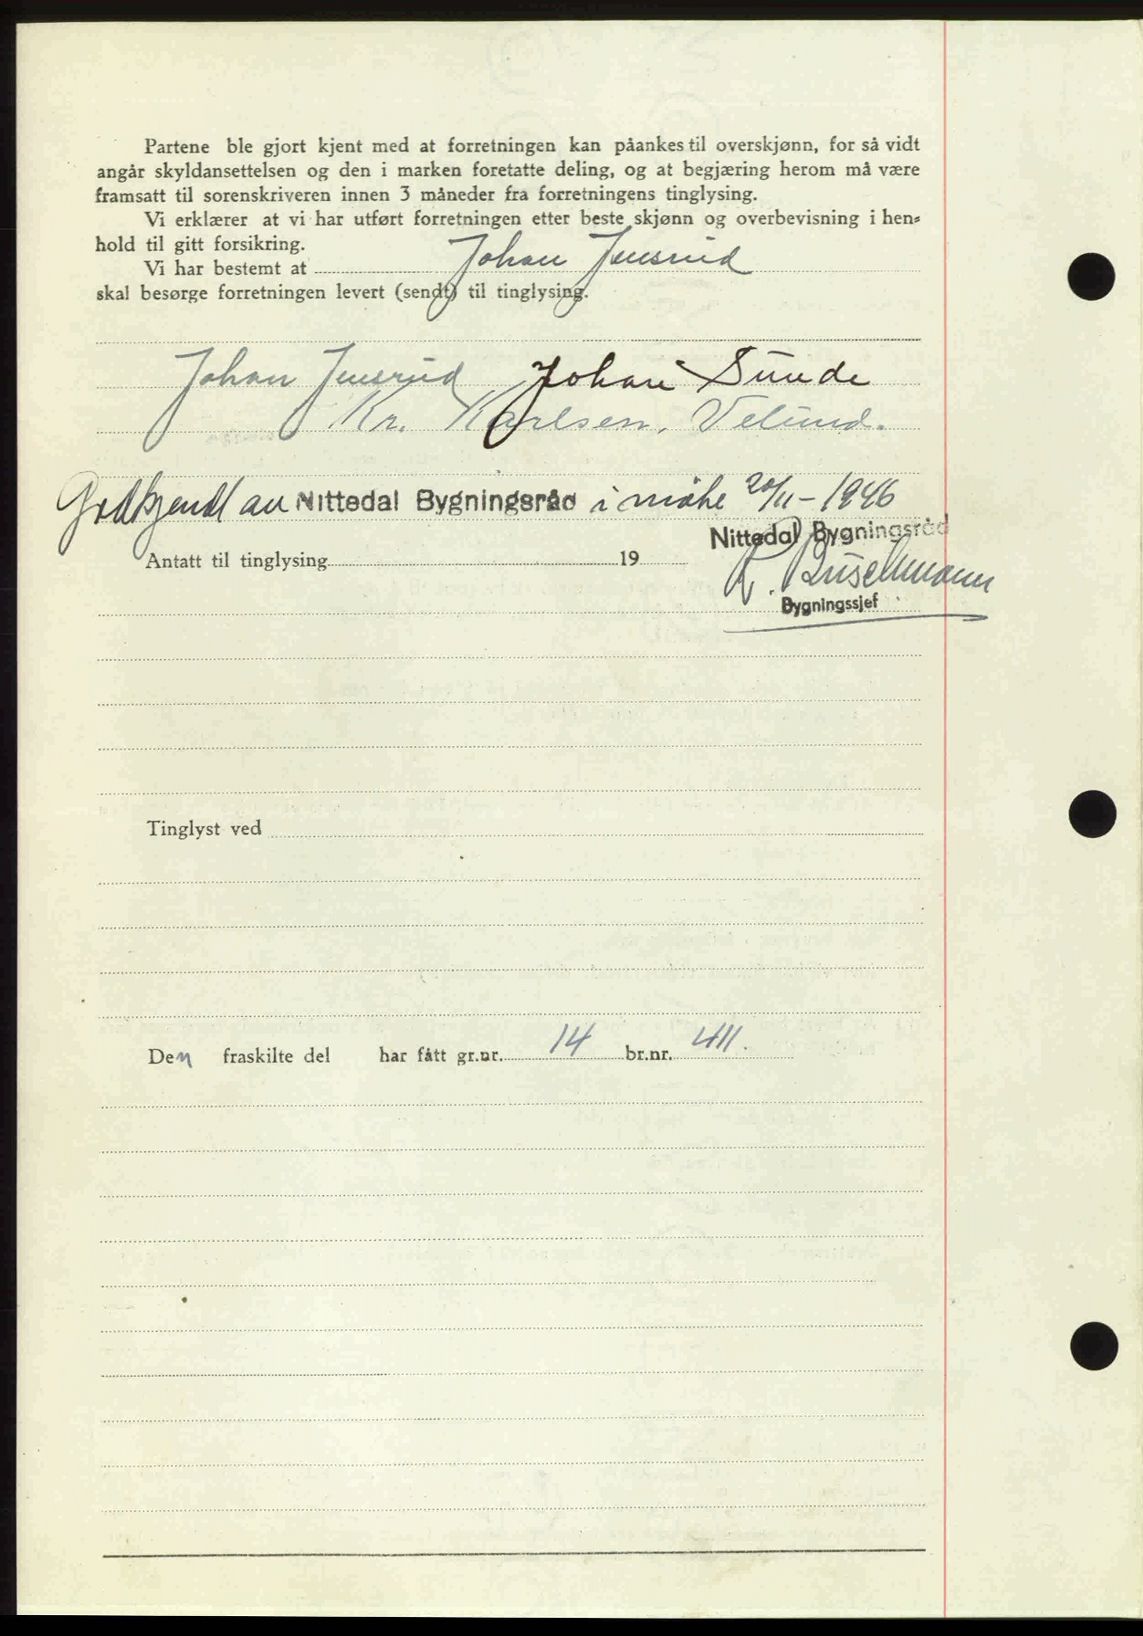 Partene ble gjort kjent med at forretningen kan påankes til overskjønn, for så vidt
angår skyldansettelsen og den i marken foretatte deling, og at begjæring herom må være
framsatt til sorenskriveren innen 3 måneder fra forretningens tinglysing.
Vi erklærer at vi har utført forretningen etter beste skjønn og overbevisning i hen=
hold til gitt forsikring.
Vi har bestemt at Johan Jensrud
skal besørge forretningen levert (sendt) til tinglysing.
Johan Jensrud Johan Sunde
Kr. Karlsen, Velund.
Godkjendt av Nittedal Bygningsråd i møte 20/11-1946
Nittedal Bygningsråd
Antatt til tinglysing 19
Bygningssjef
Tinglyst ved
Den fraskilte del har fått gr.nr. 14 br.nr. 411.